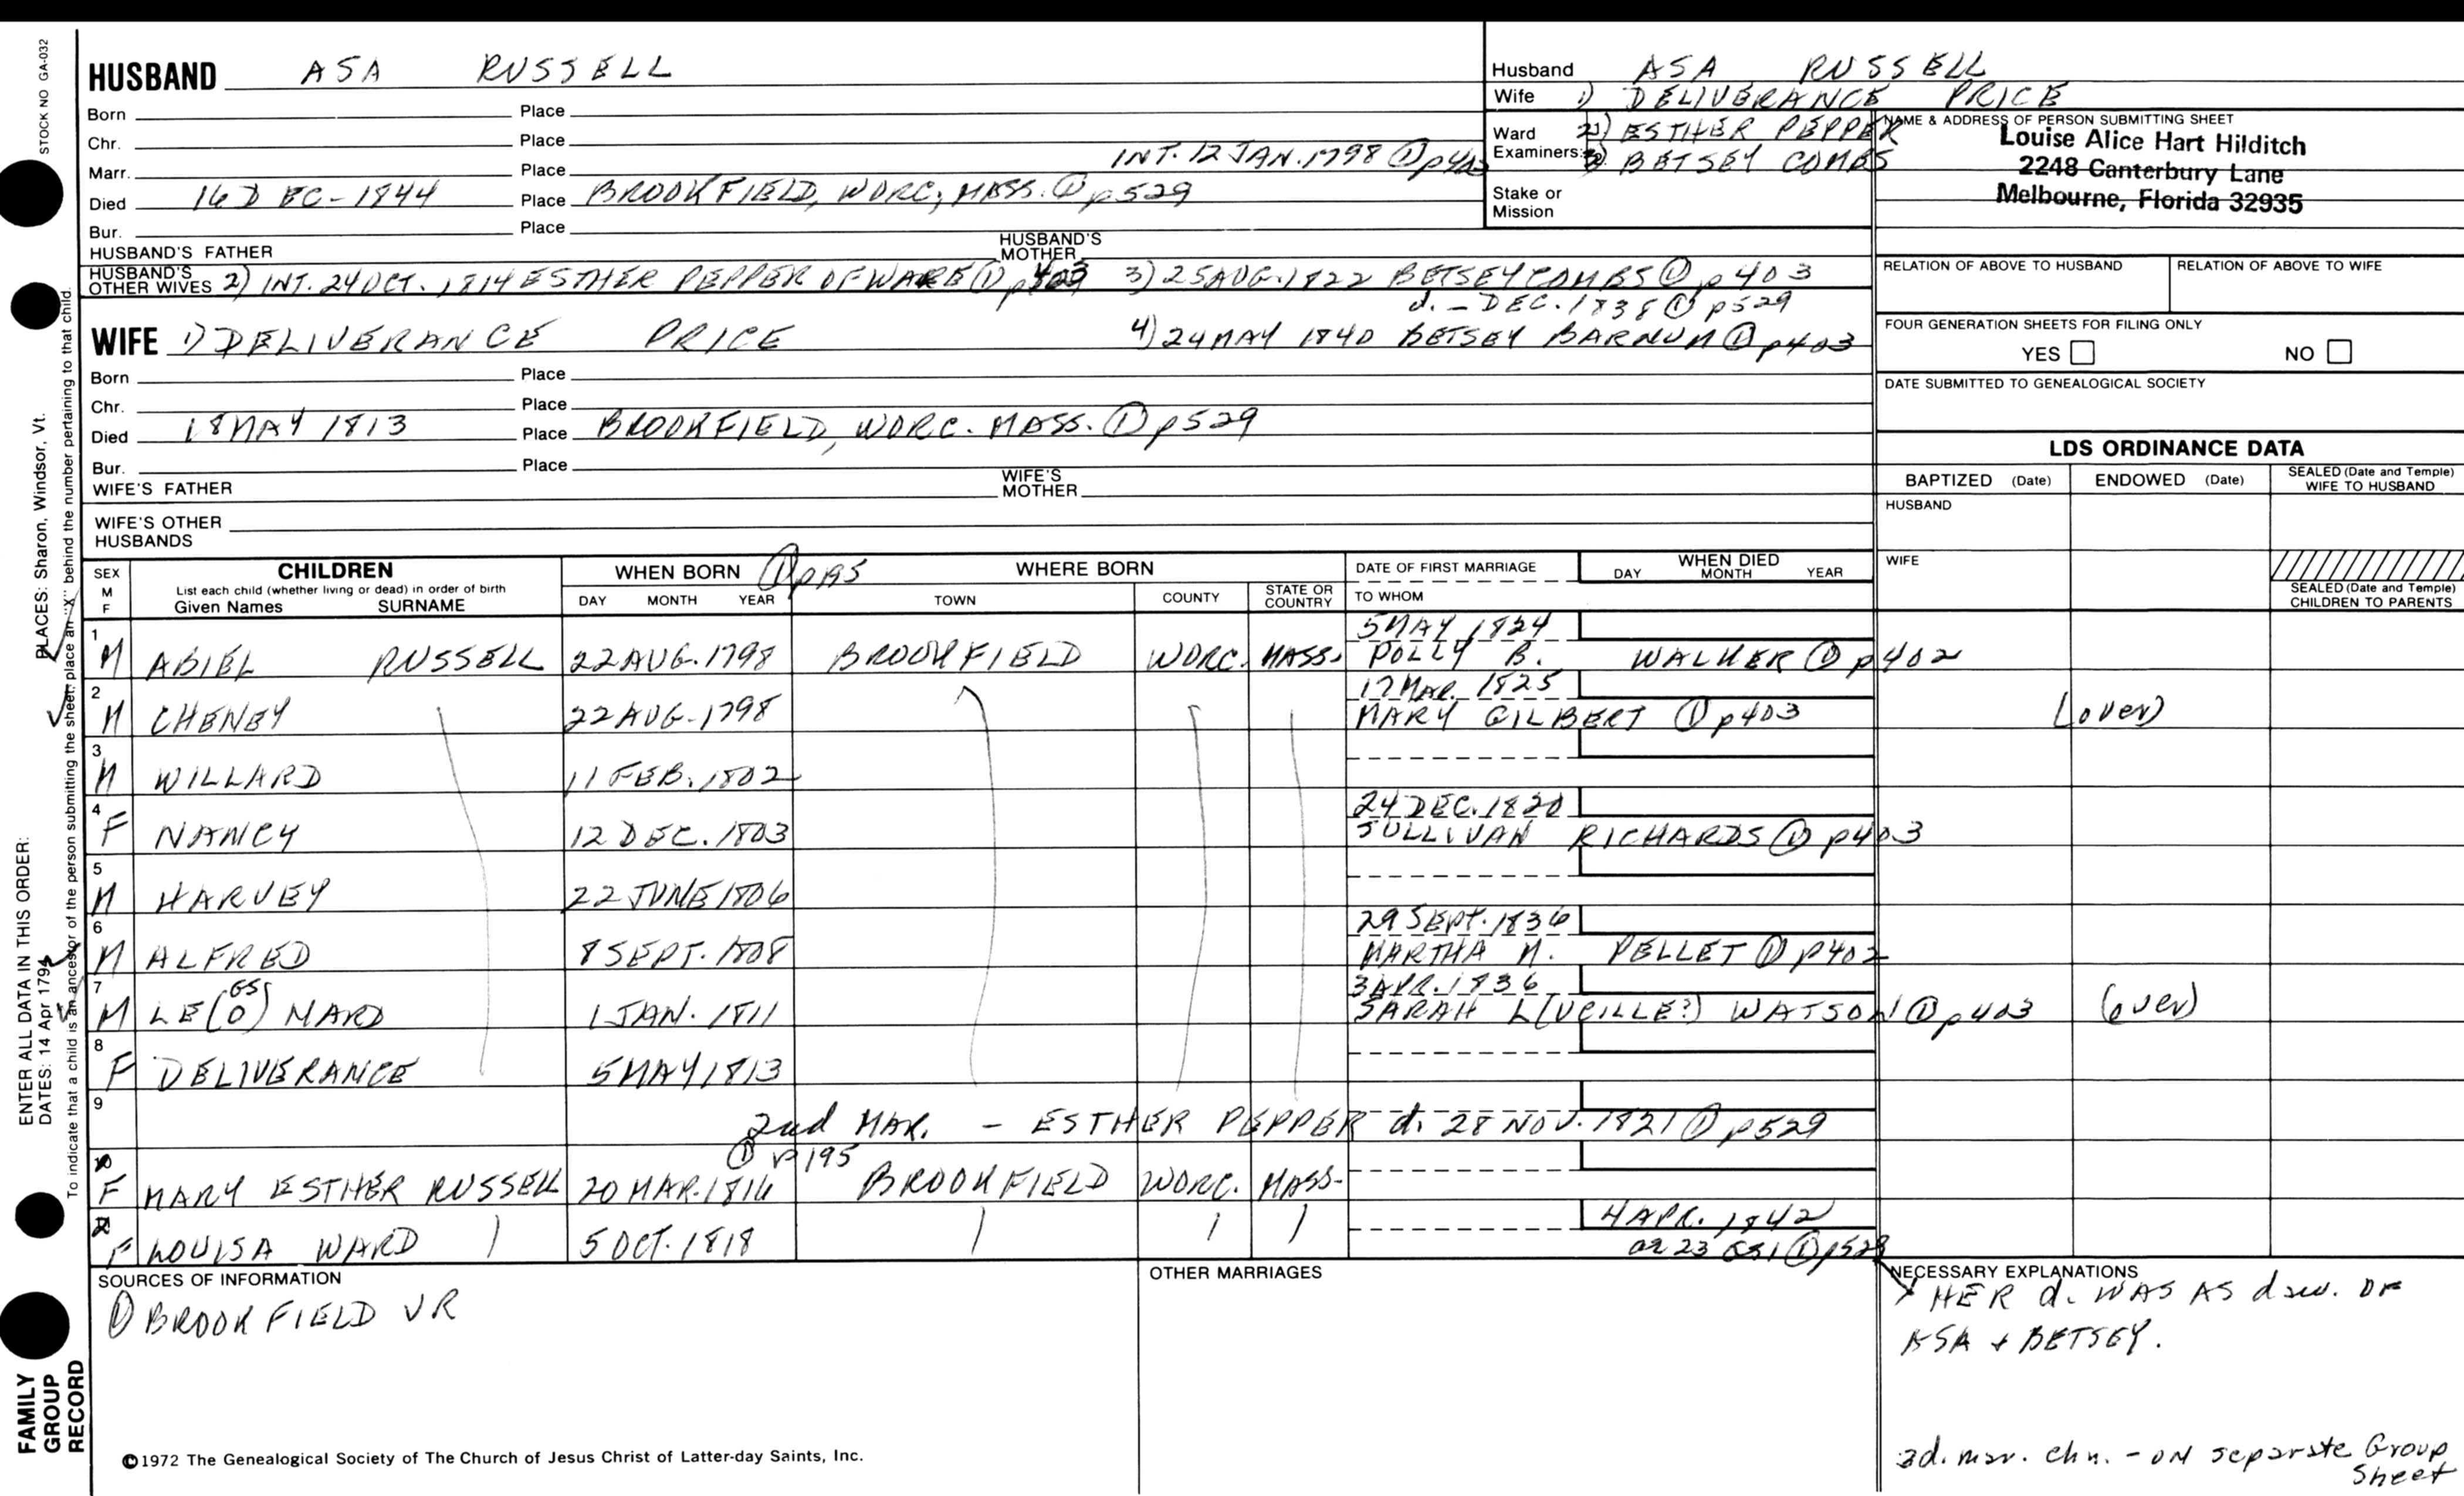 STOCK NO GA-032
HUSBAND ASA RUSSELL
Born Place
Chr. Place
Marr. Place INT. 12 JAN. 1798 ① p403
Died 16 DEC - 1844 Place BROOKFIELD, WORC, MASS. ① p529
Bur. Place
HUSBAND'S FATHER HUSBAND'S MOTHER
HUSBAND'S OTHER WIVES 2) INT. 24 OCT. 1814 ESTHER PEPPER OF WARE ① p403 3) 25 AUG. 1822 BETSEY COMBS ① p403
d. - DEC. 1838 ① p529
WIFE 1) DELIVERANCE PRICE 4) 24 MAY 1840 BETSEY BARNUM ① p403
Born Place
Chr. Place
Died 18 MAY 1813 Place BROOKFIELD, WORC. MASS. ① p529
Bur. Place
WIFE'S FATHER WIFE'S MOTHER
WIFE'S OTHER HUSBANDS
Husband ASA RUSSELL
Wife 1) DELIVERANCE PRICE
Ward 2) ESTHER PEPPER
Examiners: 3) BETSEY COMBS
Stake or Mission
NAME & ADDRESS OF PERSON SUBMITTING SHEET
Louise Alice Hart Hilditch
2248 Canterbury Lane
Melbourne, Florida 32935
RELATION OF ABOVE TO HUSBAND RELATION OF ABOVE TO WIFE
FOUR GENERATION SHEETS FOR FILING ONLY
YES NO
DATE SUBMITTED TO GENEALOGICAL SOCIETY
LDS ORDINANCE DATA
BAPTIZED (Date) ENDOWED (Date) SEALED (Date and Temple) WIFE TO HUSBAND
HUSBAND
WIFE
SEALED (Date and Temple) CHILDREN TO PARENTS
SEX M F CHILDREN WHEN BORN ① p195 WHERE BORN DATE OF FIRST MARRIAGE WHEN DIED
List each child (whether living or dead) in order of birth
Given Names SURNAME DAY MONTH YEAR TOWN COUNTY STATE OR COUNTRY TO WHOM DAY MONTH YEAR
1 5 MAY 1824
M ABIEL RUSSELL 22 AUG. 1798 BROOKFIELD WORC. MASS. POLLY B. WALKER ① p402
2 17 MAR. 1825
M CHENEY 22 AUG. 1798 MARY GILBERT ① p403 (over)
3
M WILLARD 11 FEB. 1802
4 24 DEC. 1820
F NANCY 12 DEC. 1803 SULLIVAN RICHARDS ① p403
5
M HARVEY 22 JUNE 1806
6 29 SEPT. 1836
M ALFRED 8 SEPT. 1808 MARTHA M. PELLET ① p402
7 GS 3 APR. 1836
M LE(O)NARD 1 JAN. 1811 SARAH L(UCILLE?) WATSON ① p403 (over)
8
F DELIVERANCE 5 MAY 1813
9 2nd MAR. - ESTHER PEPPER d. 28 NOV. 1821 ① p529
① p195
F MARY ESTHER RUSSELL 20 MAR. 1816 BROOKFIELD WORC. MASS.
4 APR. 1842
F LOUISA WARD 5 OCT. 1818
OR 23 ① p529
SOURCES OF INFORMATION
① BROOKFIELD VR
OTHER MARRIAGES
NECESSARY EXPLANATIONS
HER d. WAS AS dau. OF
ASA + BETSEY.
3d. mar. chn. - ON separate Group
Sheet
©1972 The Genealogical Society of The Church of Jesus Christ of Latter-day Saints, Inc.
FAMILY
GROUP
RECORD
ENTER ALL DATA IN THIS ORDER:
DATES: 14 Apr 1794 PLACES: Sharon, Windsor, Vt.
To indicate that a child is an ancestor of the person submitting the sheet, place an "X" behind the number pertaining to that child.